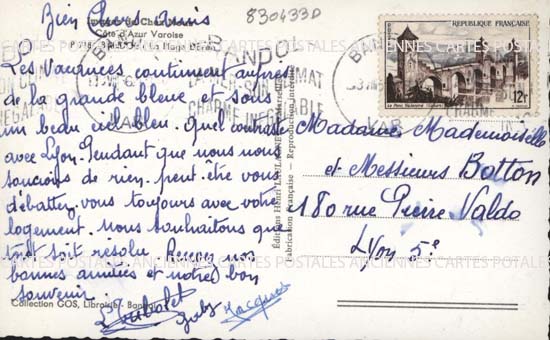 830433D
Bien Chers Amis
Images de Chez Nous
Côte d'Azur Varoise
BANDOL
Les Vacances continuent auprès
de la grande bleue et sous
un beau ciel bleu. Quel contraste
avec Lyon. Pendant que nous nous
soucions de rien. peut-être vous
débattez vous toujours avec votre
logement. Nous souhaitons que
tout soit résolu. Recevez nos
bonnes amitiés et notre bon
souvenir.
Jacques
Collection GOS, Librairie - Bandol
Fabrication Française - Reproduction interdite
BANDOL
VAR
CHARME
REPUBLIQUE FRANÇAISE
12F
BANDOL
VAR
Madame Mademoiselle
et Messieurs Botton
180 rue Pierre Valdo
Lyon 5e
CARTES POSTALES ANCIENNES CARTES POSTALES